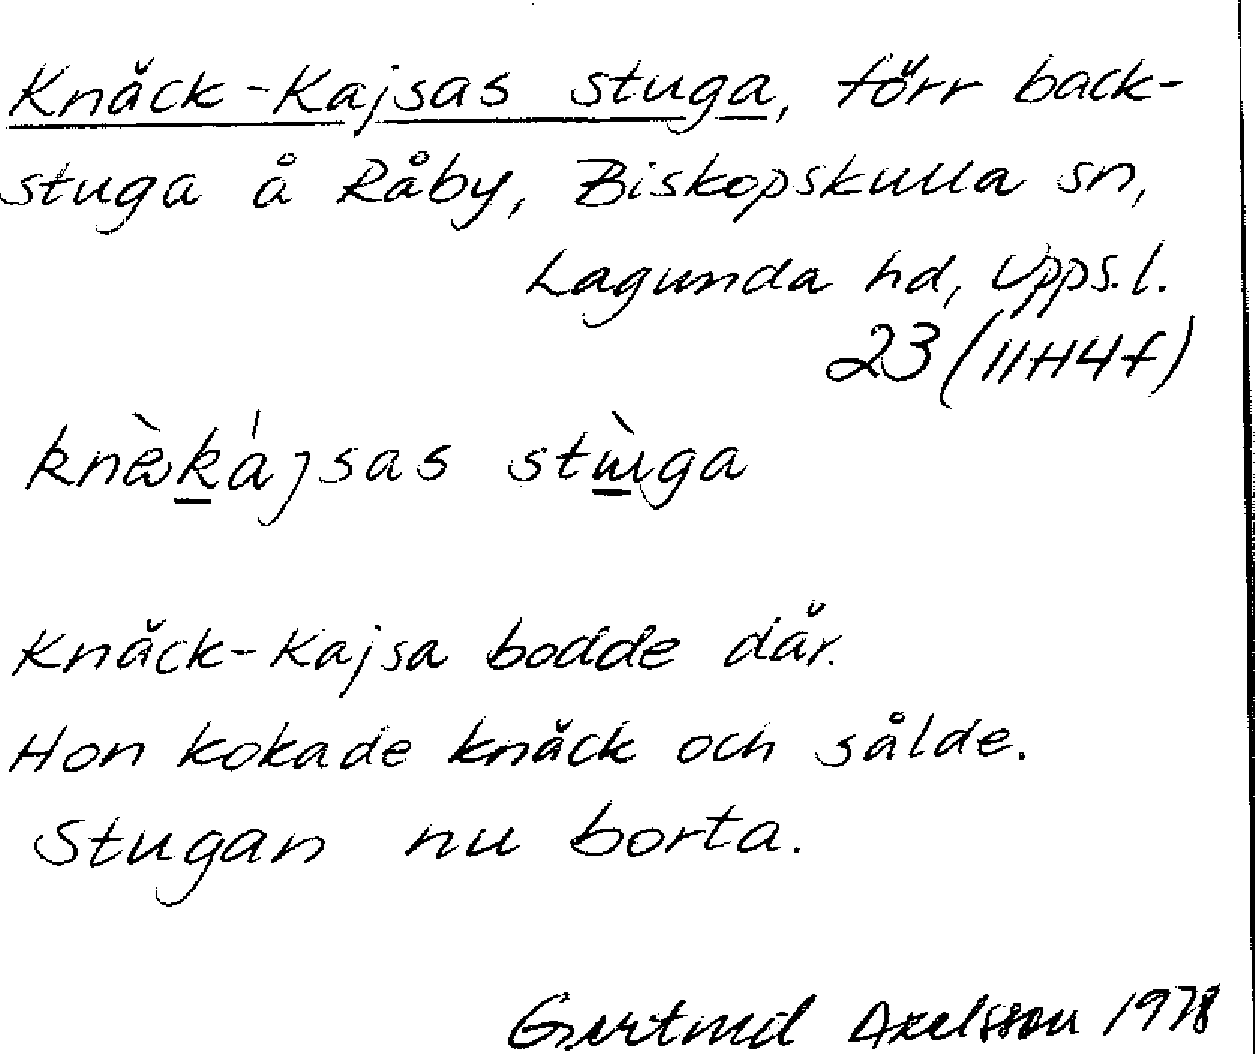 Knäck-Kajsas stuga, förr back-
stuga å Råby, Biskopskulla sn,
Lagunda hd, Upps.l.
23 (11H4f)
stùga
Knäck-Kajsa bodde där.
Hon kokade knäck och sålde.
Stugan nu borta.
Gertrud Axelsson 1978